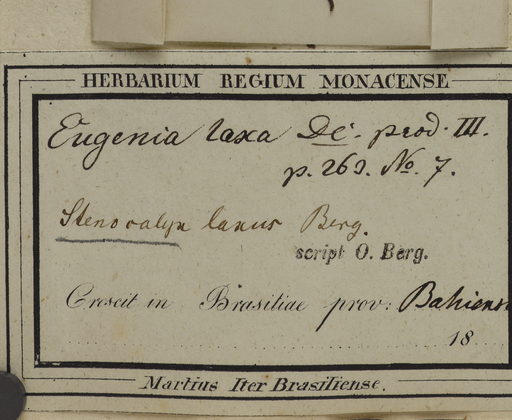 HERBARIUM REGIUM MONACENSE
Eugenia laxa DC. prod. III.
p. 263. No. 7.
Stenocalyx laxus Berg.
script O. Berg.
Crescit in Brasiliae prov: Bahiens
18
Martius Iter Brasiliense.